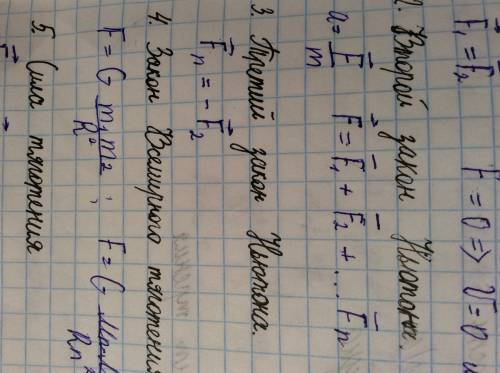 F₁ = F₂ F = 0 ⇒ v = 0 и
2. Второй закон Ньютона.
a = F/m F = F₁ + F₂ + ... Fn
3. Третий закон Ньютона.
Fn = - F₂
4. Закон Всемирного тяготения
F = G m₁m₂/R² ; F = G
5. Сила тяготения